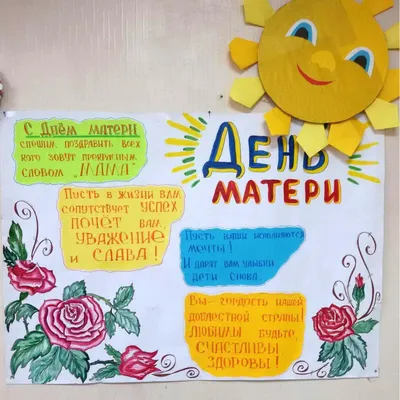 С Днём матери
спешим поздравить всех
кого зовут прекрасным
словом „МАМА"
ДЕНЬ
МАТЕРИ
Пусть в жизни вам
сопутствует успех,
почёт вам,
уважение
и слава!
Пусть ваши исполняются
мечты!
И дарят вам улыбки
дети снова.
Вы – гордость нашей
доблестной страны!
Любимы будьте,
счастливы
здоровы!